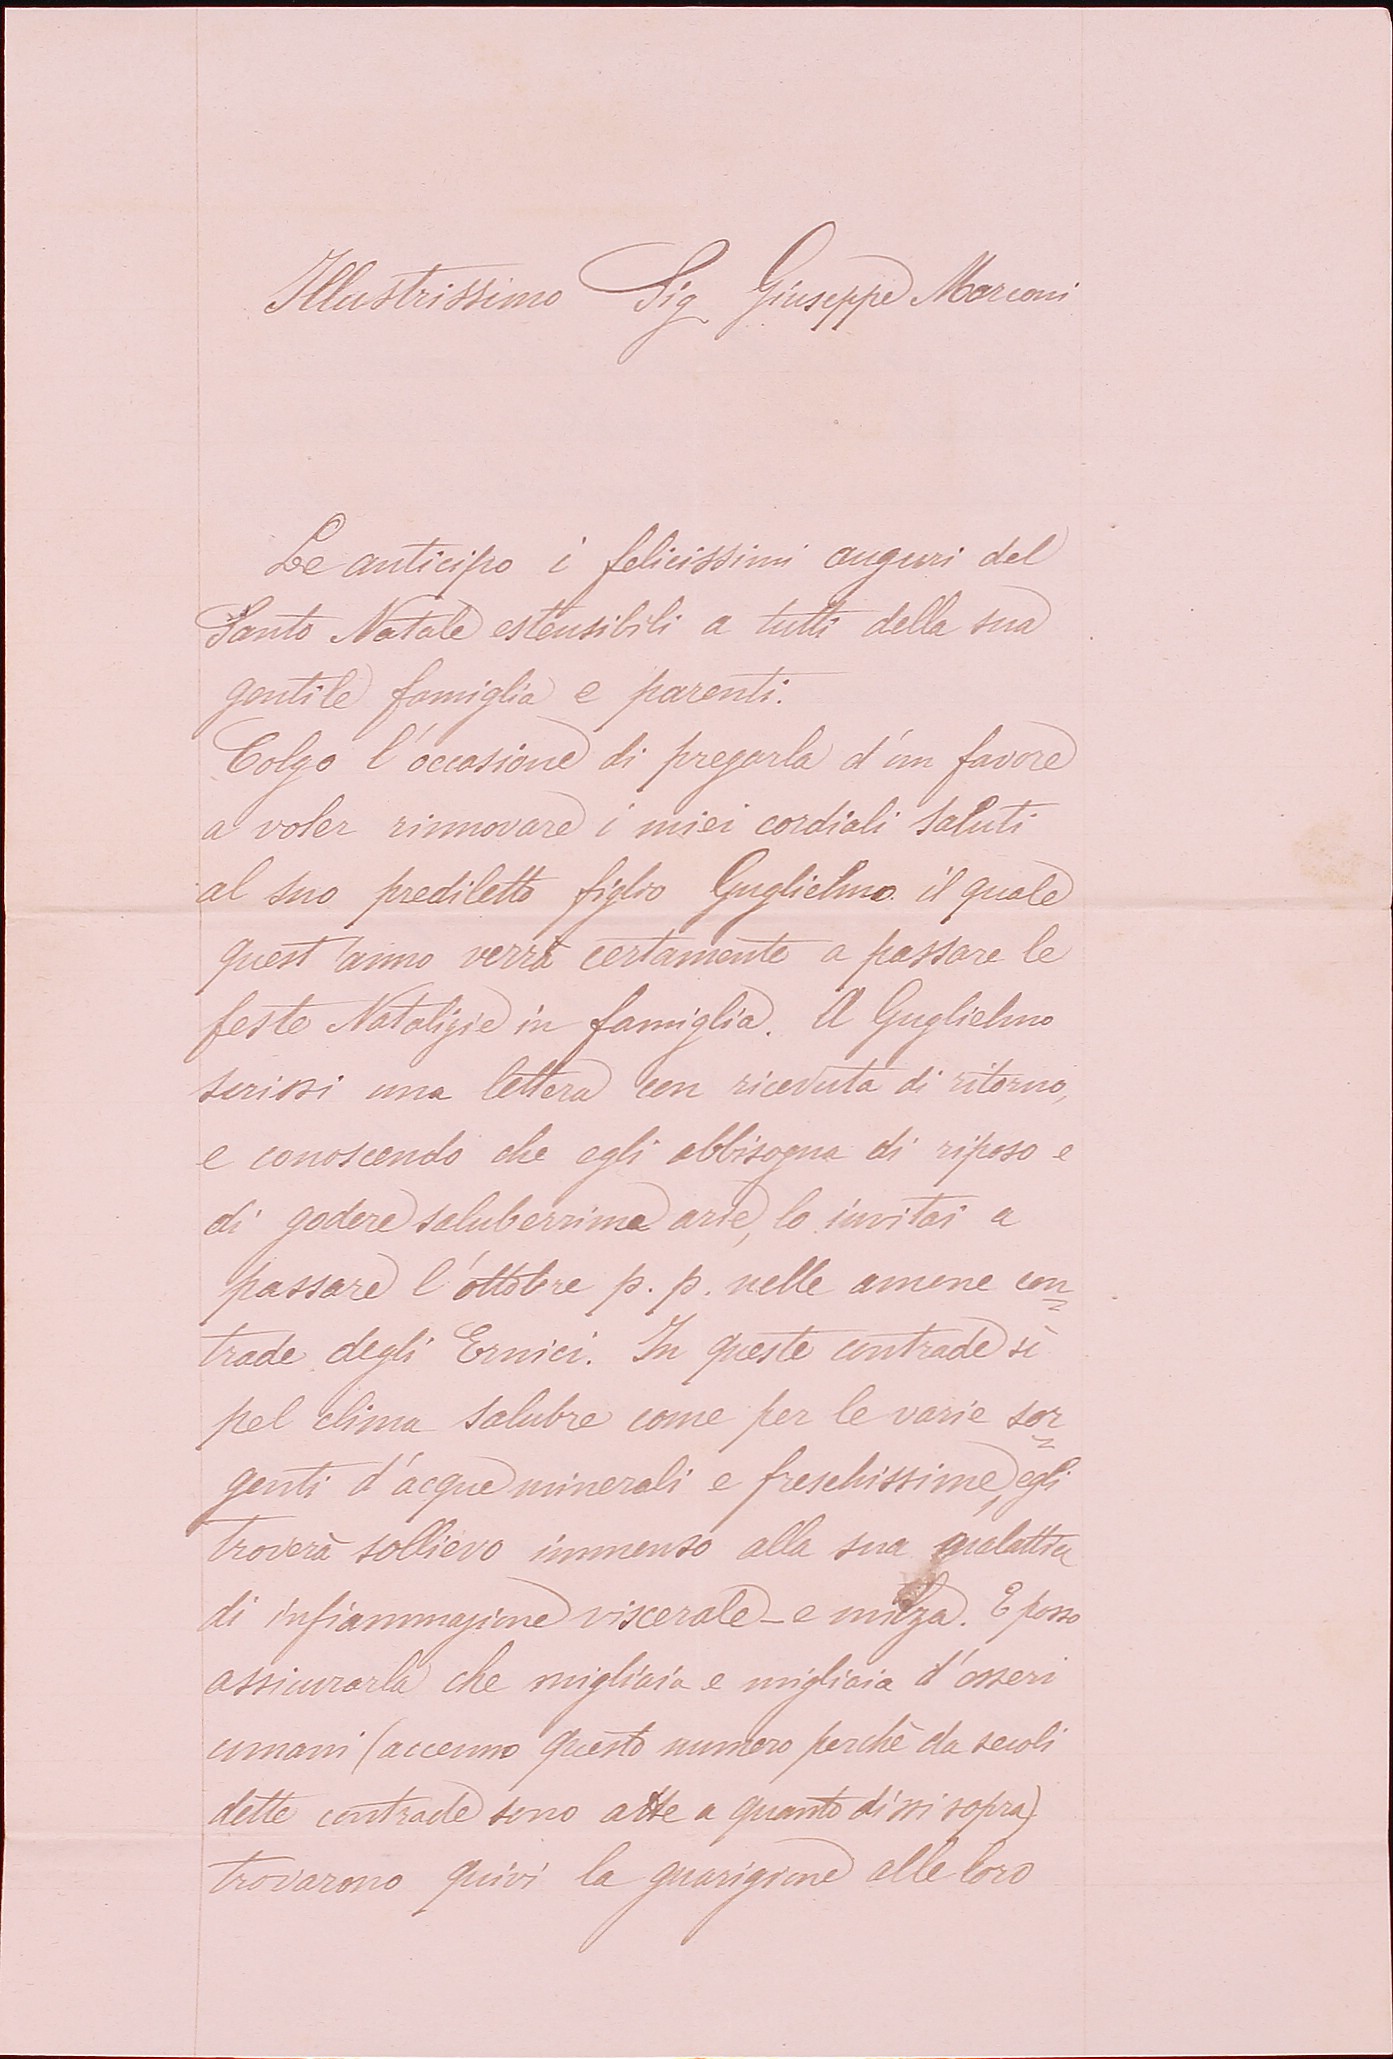 Illustrissimo Sig Giuseppe Marconi
Le anticipo i felicissimi auguri del
Santo Natale estensibili a tutti della sua
gentile famiglia e parenti.
Colgo l'occasione di pregarla d'un favore
a voler rinnovare i miei cordiali saluti
al suo prediletto figlio Guglielmo il quale
quest'anno verrà certamente a passare le
feste Natalizie in famiglia. A Guglielmo
scrissi una lettera con ricevuta di ritorno,
e conoscendo che egli abbisogna di riposo e
di godere saluberrima arie, lo invitai a
passare l'ottobre p. p. nelle amene con=
trade degli Ernici. In queste contrade sì
pel clima salubre come per le varie sor=
genti d'acque minerali e freschissime, egli
troverà sollievo immenso alla sua malattia
di infiammazione viscerale - e milza. E posso
assicurarla che migliaia e migliaia d'esseri
umani (accenno questo numero perchè da secoli
dette contrade sono atte a quanto dissi sopra)
trovarono quivi la guarigione alle loro